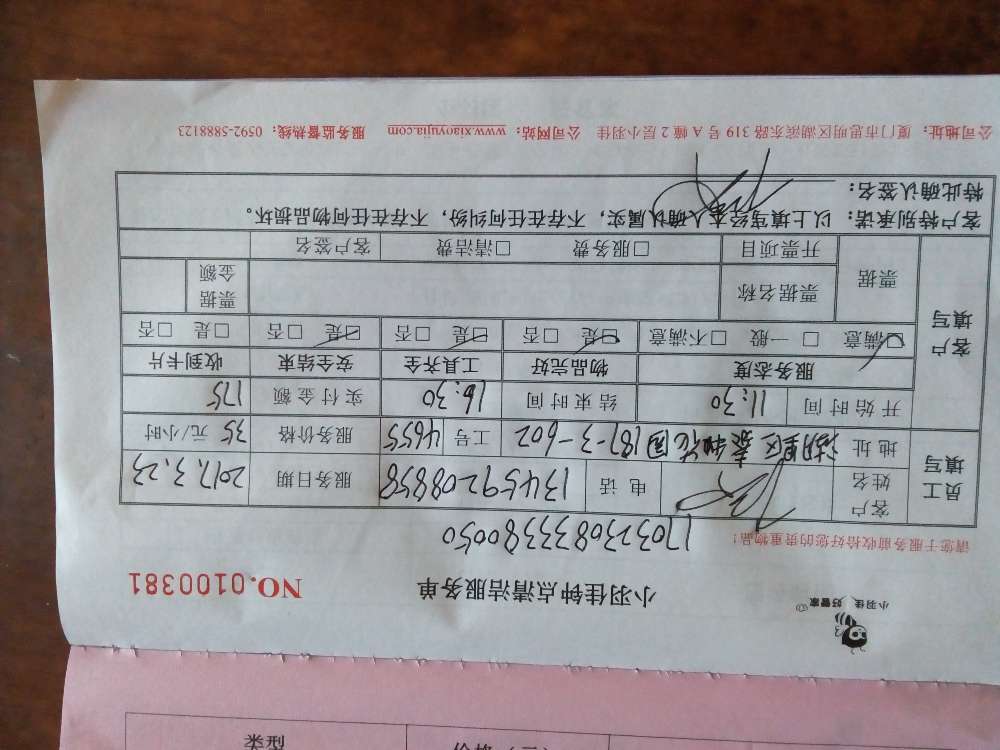 小羽佳 好管家
小羽佳钟点清洁服务单 NO.0100381
17032308333380050
请您于服务前收拾好您的贵重物品!
员工填写 客户姓名 电话 13459208858 服务日期 2017.3.23
地址 湖里区泰和花园187-3-602 工号 4655 服务价格 35 元/小时
开始时间 11:30 结束时间 16:30 实付金额 175
客户填写 服务态度 物品完好 工具齐全 安全结束 收到卡片
☑满意 □一般 □不满意 ☑是 □否 ☑是 □否 ☑是 □否 □是 □否
票据 票据名称 票据金额
开票项目 □服务费 □清洁费 客户签名
客户特别承诺: 以上填写经本人确认属实,不存在任何纠纷,不存在任何物品损坏。
特此确认签名:
公司地址: 厦门市思明区湖滨东路 319 号 A 幢 2 层小羽佳 公司网站: www.xiaoyujia.com 服务监督热线: 0592-5888123
类型